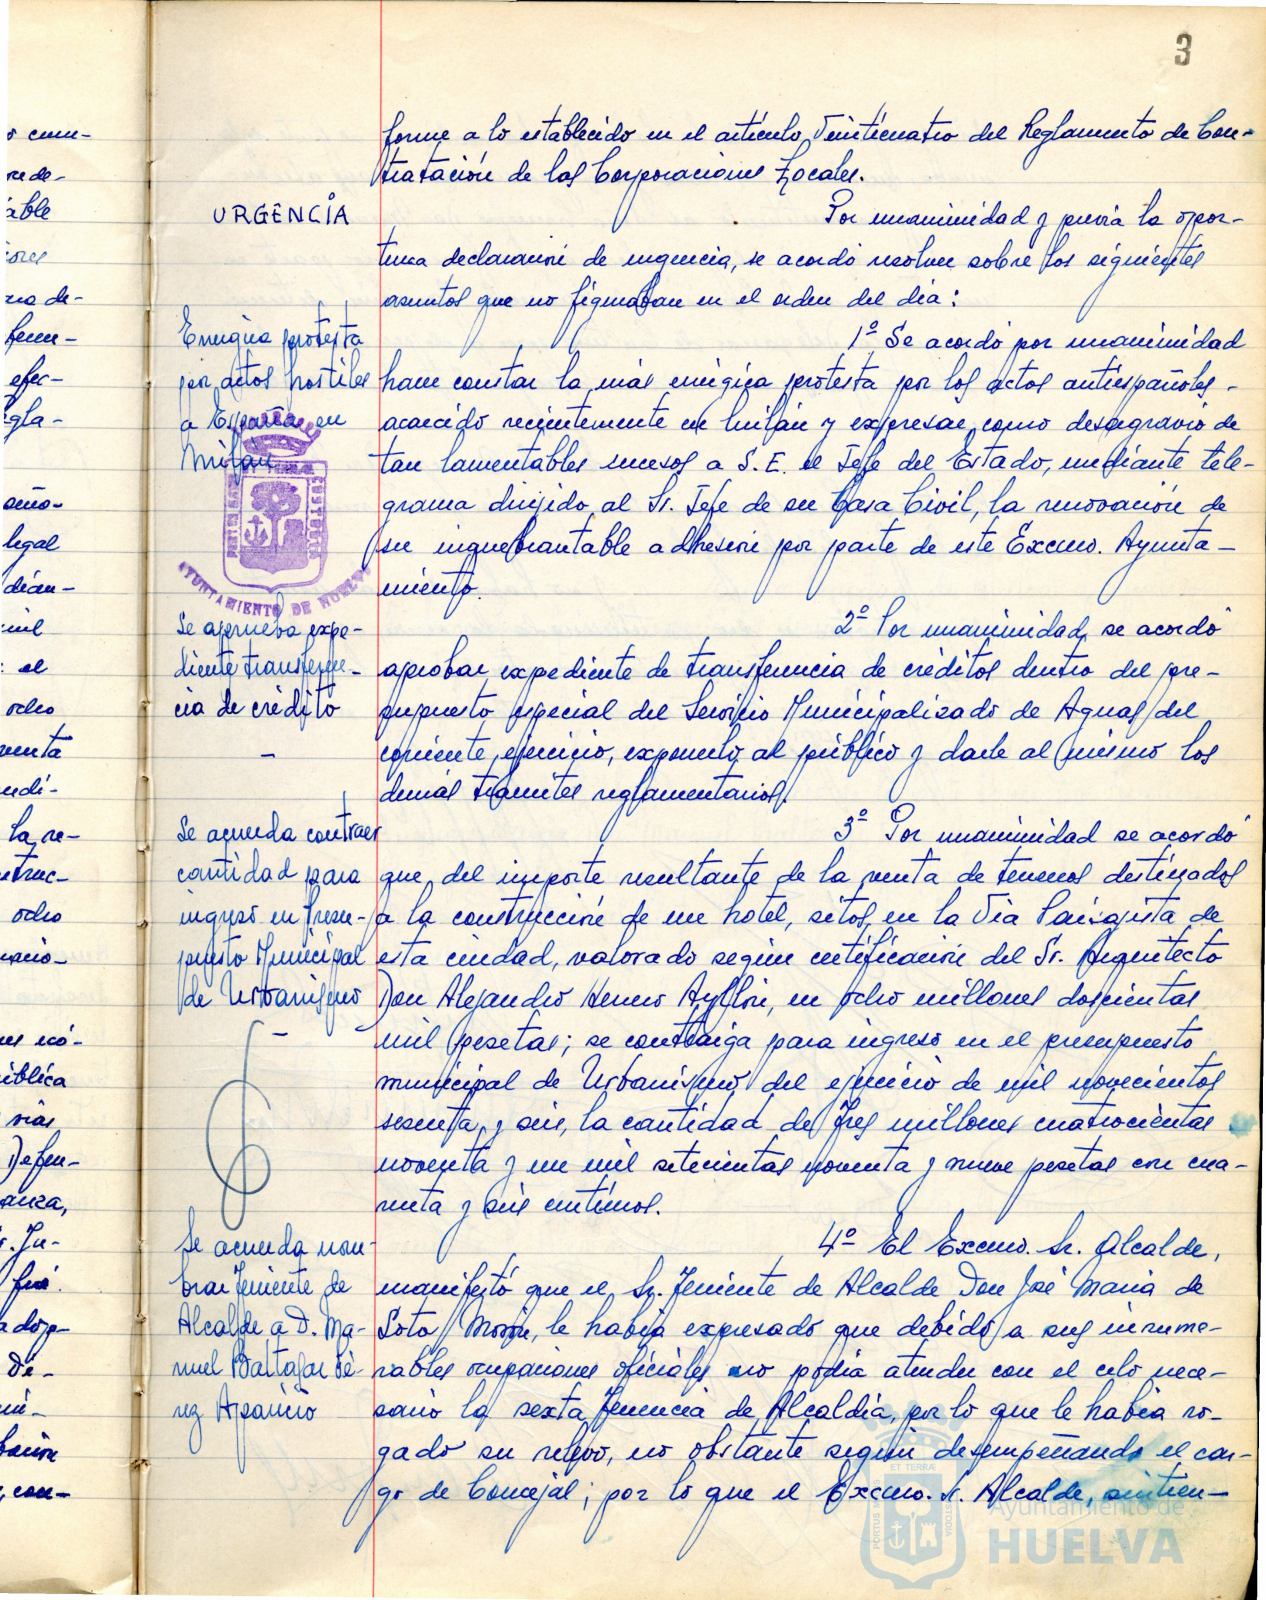 3
forme a lo establecido en el artículo Veinticuatro del Reglamento de Con-
tratación de las Corporaciones Locales.
URGENCIA
Por unanimidad y previa la opor-
tuna declaración de urgencia, se acordó resolver sobre los siguientes
asuntos que no figuraban en el orden del día:
Enérgica protesta
por actos hostiles
a España en
Milán
1º Se acordó por unanimidad
hacer constar la más enérgica protesta por los actos antiespañoles
acaecido recientemente en Milán y expresar, como desagravio de
tan lamentables sucesos a S.E. el Jefe del Estado, mediante tele-
grama dirijido, al Sr. Jefe de su Casa Civil, la renovación de
su inquebrantable adhesión por parte de este Excmo. Ayunta-
miento.
AYUNTAMIENTO DE HUELVA
Se aprueba expe-
diente transferen-
cia de crédito
2º Por unanimidad, se acordó
aprobar, expediente de transferencia de créditos dentro del pre-
supuesto especial del Servicio Municipalizado de Aguas del
corriente, ejercicio, exponerlo al público y darle al mismo los
demás trámites reglamentarios.
Se acuerda contraer
cantidad para
ingreso en Presu-
puesto Municipal
de Urbanismo
3º Por unanimidad se acordó
que, del importe resultante de la venta de terrenos destinados
a la construcción de un hotel, sitos, en la Vía Paisajista de
esta ciudad, valorado según certificación del Sr. Arquitecto
Don Alejandro Herrero Ayllón, en ocho millones doscientas
mil pesetas; se contraiga para ingreso en el presupuesto
municipal de Urbanismo del ejercicio de mil novecientos
sesenta y seis, la cantidad de tres millones cuatrocientas
noventa y un mil setecientas noventa y nueve pesetas con cua-
renta y seis céntimos.
Se acuerda nom-
brar Teniente de
Alcalde a D. Ma-
nuel Baltasar Pé-
rez Aparicio
4º El Excmo. Sr. Alcalde,
manifestó que el Sr. Teniente de Alcalde Don José María de
Soto Morón, le había expresado que debido a sus innume-
rables ocupaciones oficiales no podía atender con el celo nece-
sario la sexta Tenencia de Alcaldía, por lo que le había ro-
gado su relevo, no obstante seguir desempeñando el car-
go de Concejal; por lo que el Excmo. Sr. Alcalde, sintien-
Ayuntamiento de
HUELVA